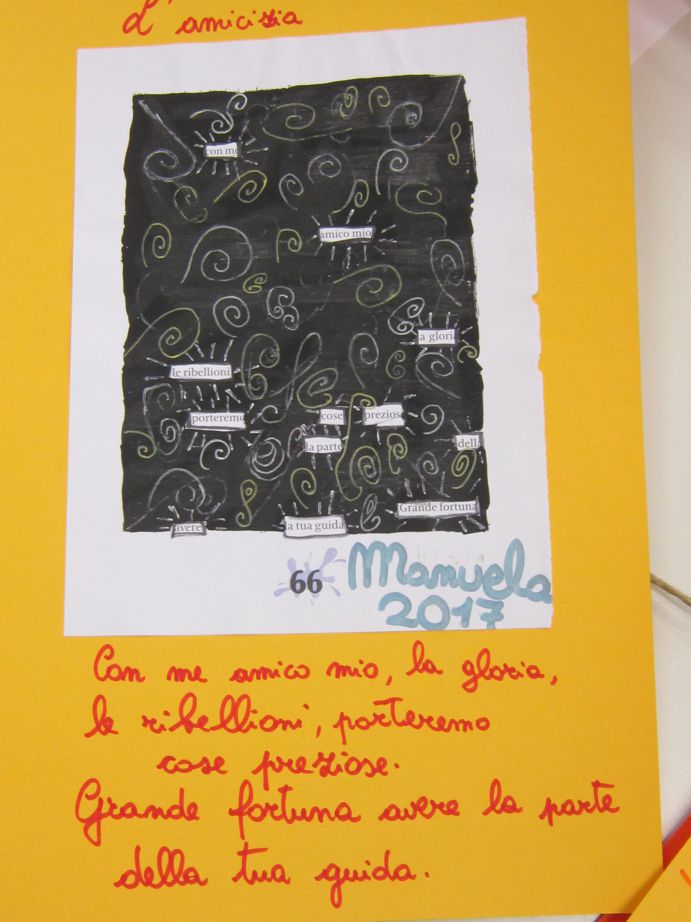 L'amicizia
con me
amico mio
a glori
le ribellioni
porteremo
cose
preziose
la parte
della
Grande fortuna
avere
a tua guida
66
Manuela
2017
Con me amico mio, la gloria,
le ribellioni, porteremo
cose preziose.
Grande fortuna avere la parte
della tua guida.